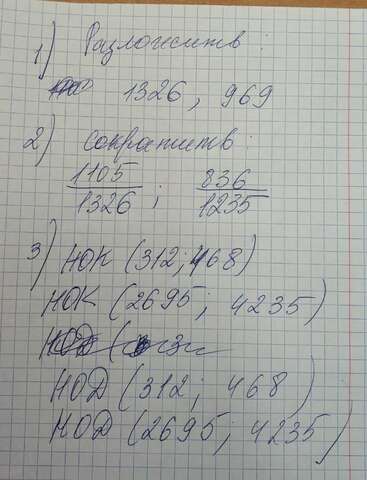 1) Разложить:
1326, 969
2) сократить:
1105/1326; 836/1235
3) НОК (312; 468)
НОК (2695; 4235)
НОД (
НОД (312; 468)
НОД (2695; 4235)